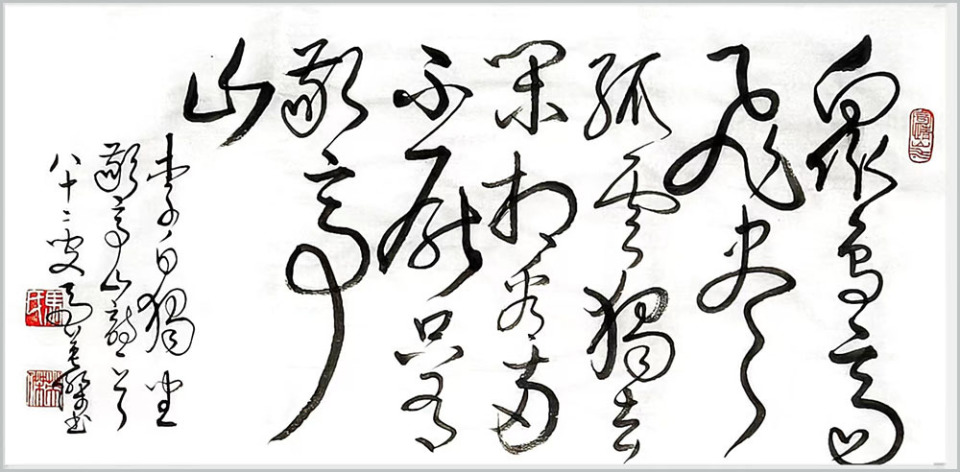 衆鳥高
飛尽
孤雲獨去
閑相看兩
不厭只有
敬亭
山
李白獨坐
敬亭山詩一首
八十二叟馬傑書
馬氏